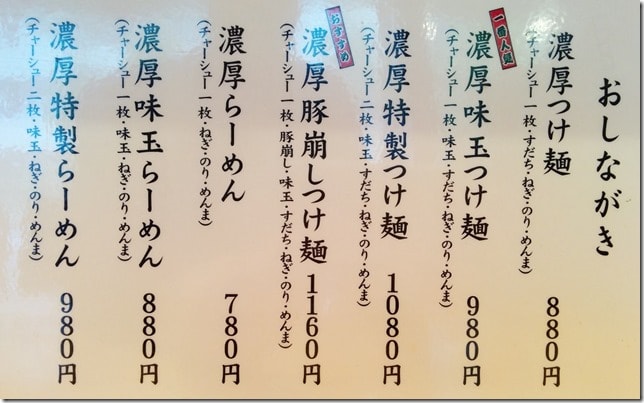 おしながき
濃厚つけ麺 880円
（チャーシュー一枚・すだち・ねぎ・のり・めんま）
一番人気
濃厚味玉つけ麺 980円
（チャーシュー一枚・味玉・すだち・ねぎ・のり・めんま）
濃厚特製つけ麺 1080円
（チャーシュー二枚・味玉・すだち・ねぎ・のり・めんま）
おすすめ
濃厚豚崩しつけ麺 1160円
（チャーシュー一枚・豚崩し・味玉・すだち・ねぎ・のり・めんま）
濃厚らーめん 780円
（チャーシュー一枚・ねぎ・のり・めんま）
濃厚味玉らーめん 880円
（チャーシュー一枚・味玉・ねぎ・のり・めんま）
濃厚特製らーめん 980円
（チャーシュー二枚・味玉・ねぎ・のり・めんま）